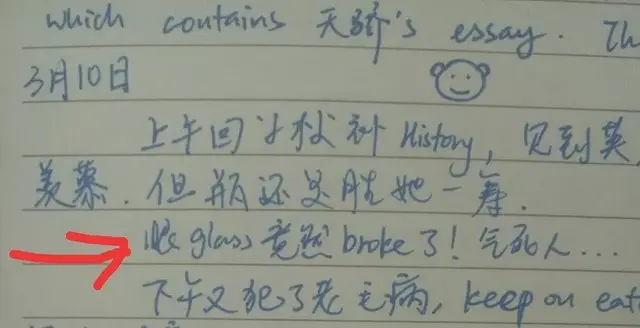 which contains 天骄's essay. Th
3月10日
上午回学校补 History, 见到英
羡慕. 但瓶还是胜她一筹.
眼glass竟然broke了! 气死人...
下午又犯了老毛病, keep on eat